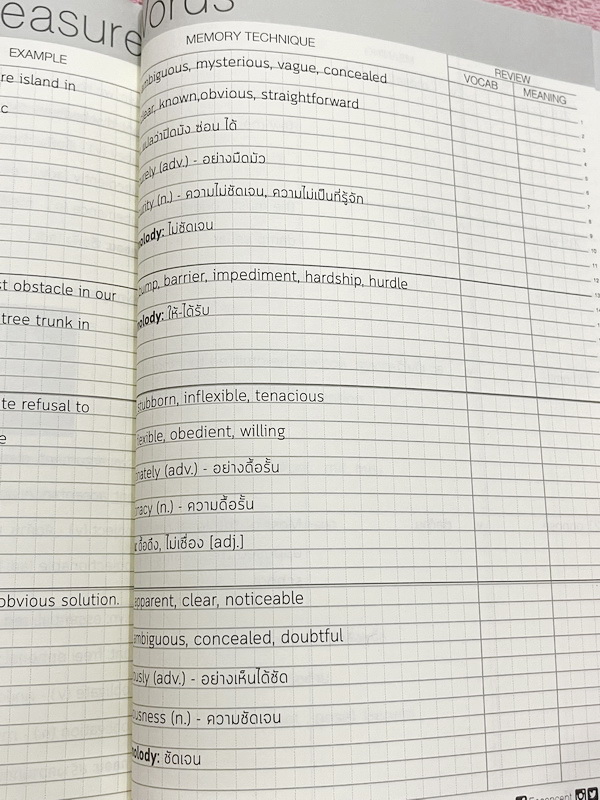 easure
EXAMPLE
re island in
c
st obstacle in our
tree trunk in
te refusal to
e
obvious solution.
ords
MEMORY TECHNIQUE
REVIEW
VOCAB MEANING
mbiguous, mysterious, vague, concealed
ear, known,obvious, straightforward
แปลว่าปิดบัง ซ่อน ได้
urely (adv.) - อย่างมืดมัว
urity (n.) - ความไม่ชัดเจน, ความไม่เป็นที่รู้จัก
nolody: ไม่ชัดเจน
bump, barrier, impediment, hardship, hurdle
nolody: ให้-ได้รับ
stubborn, inflexible, tenacious
lexible, obedient, willing
nately (adv.) - อย่างดื้อรั้น
nacy (n.) - ความดื้อรั้น
ดื้อดึง, ไม่เชื่อง [adj.]
apparent, clear, noticeable
ambiguous, concealed, doubtful
usly (adv.) - อย่างเห็นได้ชัด
usness (n.) - ความชัดเจน
nolody: ชัดเจน